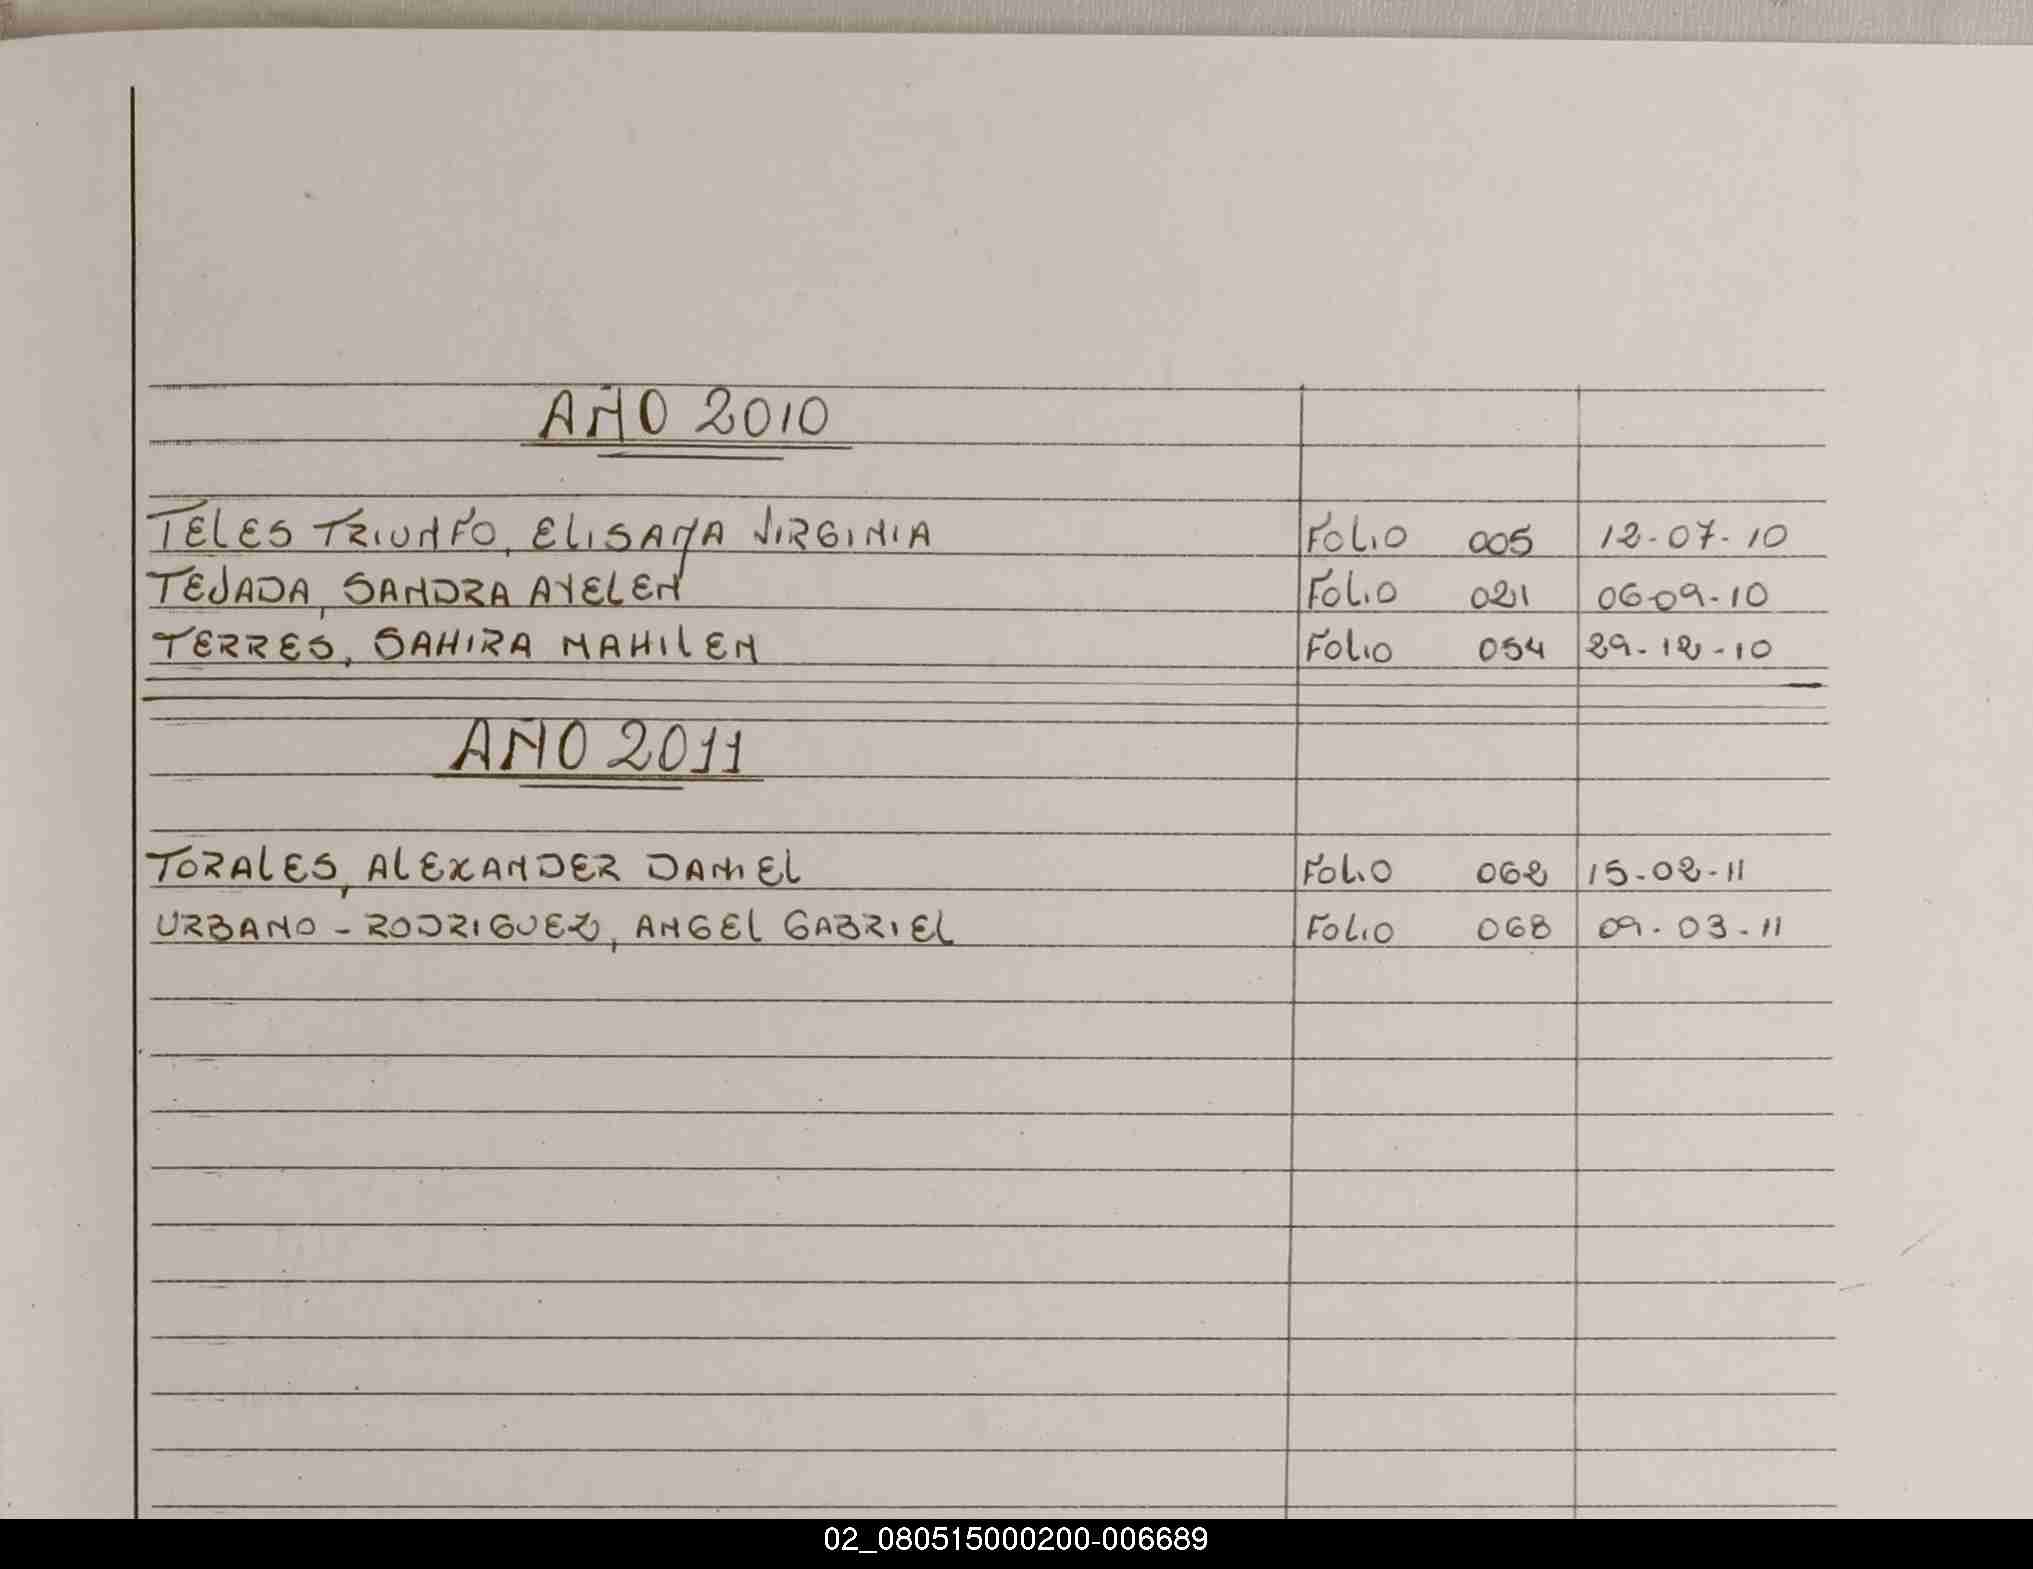 AÑO 2010
TELES TRIUNFO, ELISANA VIRGINIA FOLIO 005 12-07-10
TEJADA, SANDRA AYELEN FOLIO 021 06-09-10
TERRES, SAHIRA NAHILEN FOLIO 054 29-12-10
AÑO 2011
TORALES, ALEXANDER DANIEL FOLIO 062 15-02-11
URBANO - RODRIGUEZ, ANGEL GABRIEL FOLIO 068 09-03-11
02_080515000200-006689